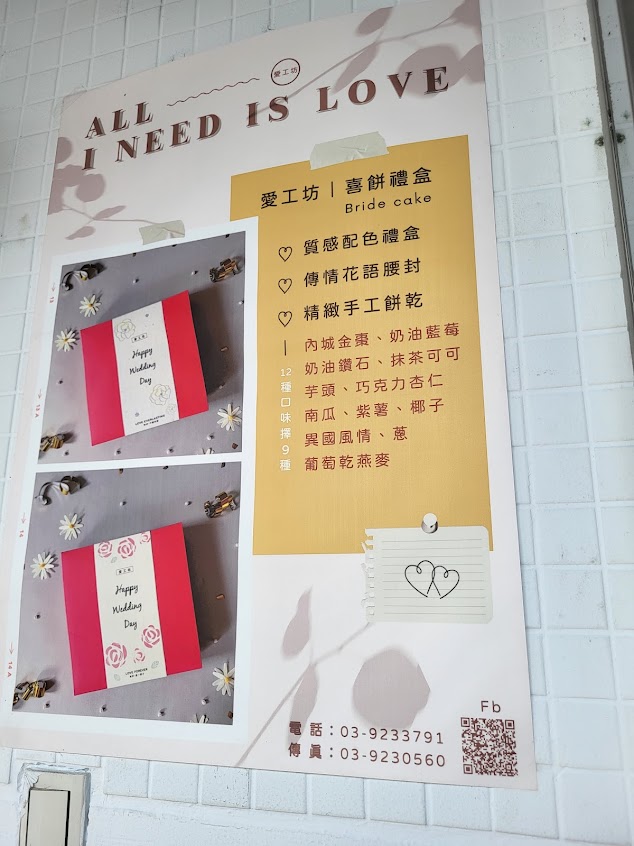 愛工坊
ALL
I NEED IS LOVE
愛工坊｜喜餅禮盒
Bride cake
質感配色禮盒
傳情花語腰封
精緻手工餅乾
12種口味擇9種
內城金棗、奶油藍莓
奶油鑽石、抹茶可可
芋頭、巧克力杏仁
南瓜、紫薯、椰子
異國風情、蔥
葡萄乾燕麥
愛工坊
Happy
Wedding
Day
愛工坊
Happy
Wedding
Day
LOVE FOREVER
14A
Fb
電話：03-9233791
傳真：03-9230560